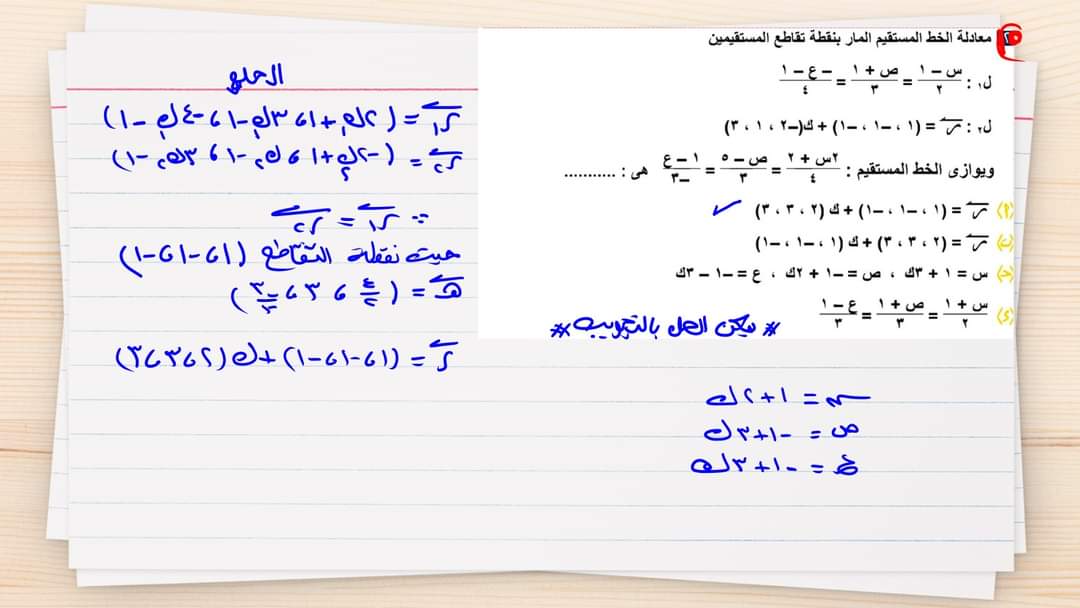 معادلة الخط المستقيم المار بنقطة تقاطع المستقيمين
ل١ : (س – ١)/٢ = (ص + ١)/٣ = (– ع – ١)/٤
ل٢ : س = (١ ، –١ ، –١) + ك(–٢ ، ١ ، ٣)
ويوازى الخط المستقيم : (٢س + ٢)/٤ = (ص – ٥)/٣ = (١ – ع)/–٣ هى : ...........
(أ) س = (١ ، –١ ، –١) + ك (٢ ، ٣ ، ٣) ✓
(ب) س = (٢ ، ٣ ، ٣) + ك (١ ، –١ ، –١)
(جـ) س = ١ + ٣ك ، ص = –١ + ٢ك ، ع = –١ – ٣ك
(د) (س + ١)/٢ = (ص + ١)/٣ = (ع – ١)/٣
* يمكن الحل بالتجريب *
الحل
ر١ = (٢ك١+١ ، ٣ك١-١ ، -٤ك١-١)
ر٢ = (-٢ك٢+١ ، ك٢-١ ، ٣ك٢-١)
∵ ر١ = ر٢
حيث نقطة التقاطع (١ ، -١ ، -١)
هـ = (٤/٢ ، ٣ ، -٣/-٣)
ر = (١ ، -١ ، -١) + ك (٢ ، ٣ ، ٣)
س = ١+٢ك
ص = -١+٣ك
ع = -١+٣ك